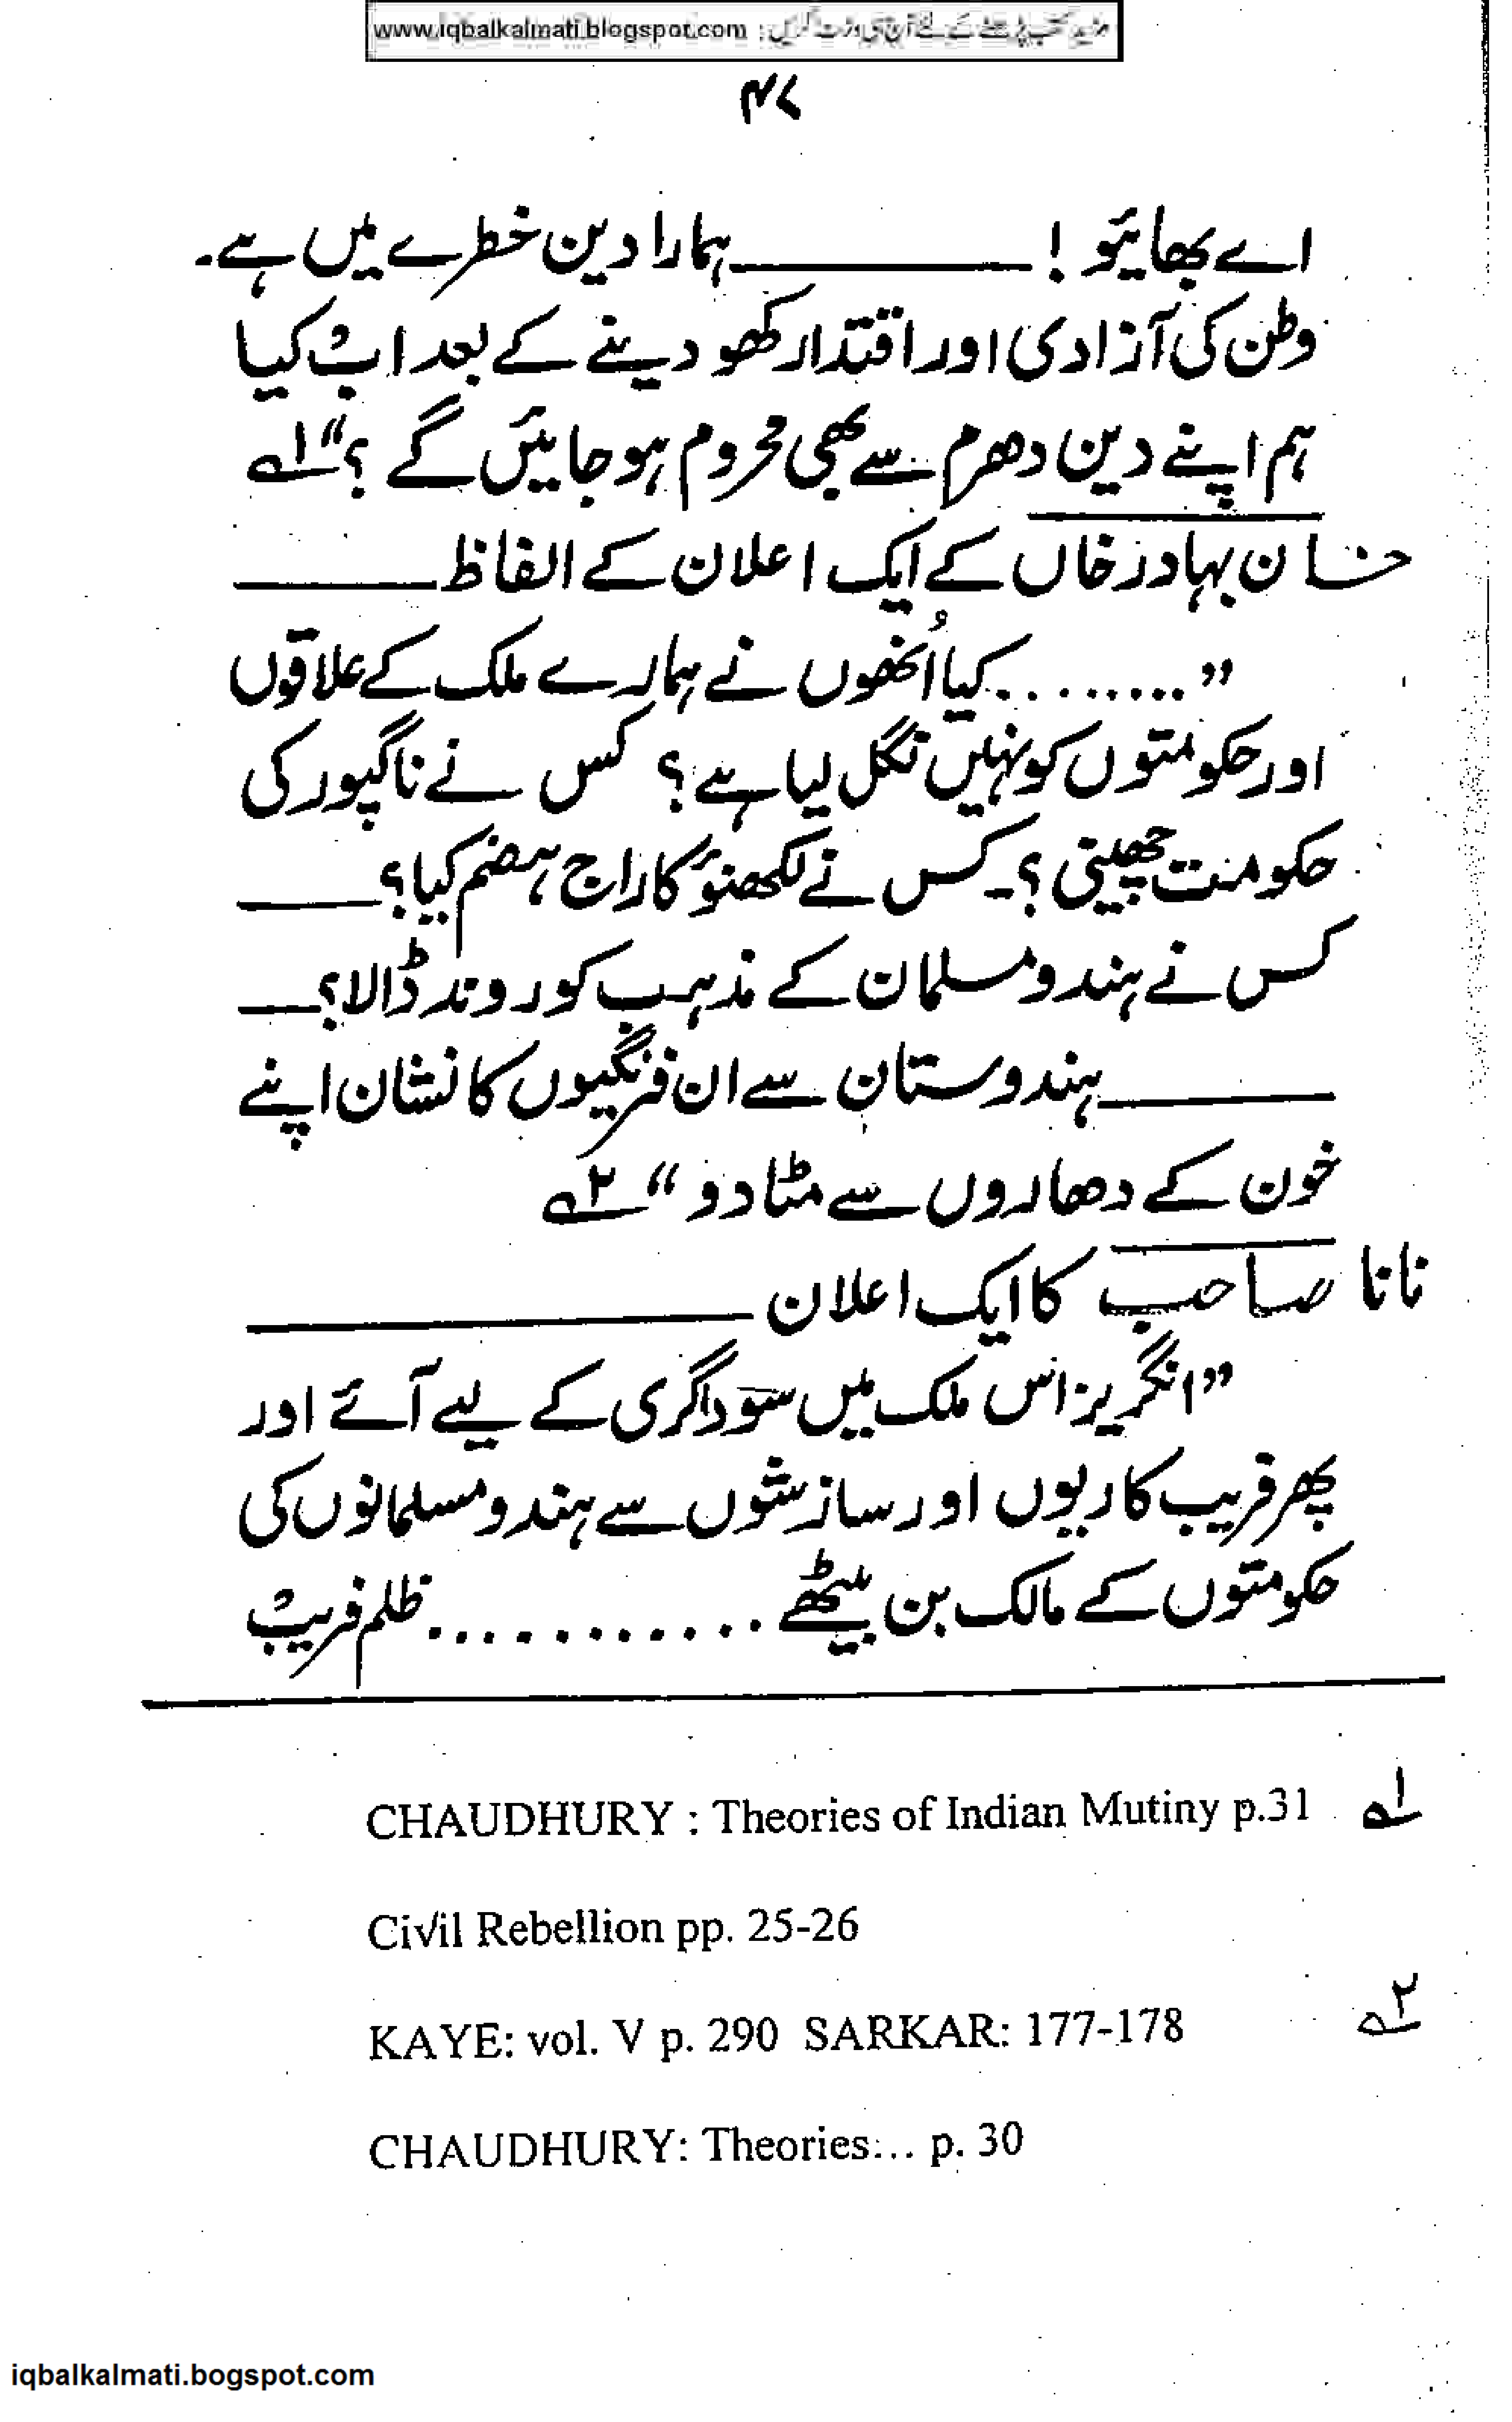 مزید کتب پڑھنے کے لئے آج ہی وزٹ کریں : www.iqbalkalmati.blogspot.com
۴۷
اے بھائیو ! ــــــــــــ ہمارا دین خطرے میں ہے۔
وطن کی آزادی اور اقتدار کھو دینے کے بعد اب کیا
ہم اپنے دین دھرم سے بھی محروم ہو جائیں گے ؟“ ۱؎
خان بہادر خاں کے ایک اعلان کے الفاظ ــــــــــــ
”......... کیا اُنھوں نے ہمارے ملک کے علاقوں
اور حکومتوں کو نہیں نگل لیا ہے ؟ کس نے ناگپور کی
حکومت چھینی ؟۔ کس نے لکھنؤ کا راج ہضم کیا؟ ــــــــــــ
کس نے ہندو مسلمان کے مذہب کو روند ڈالا؟ ــــــ
ــــــــــــ ہندوستان سے ان فرنگیوں کا نشان اپنے
خون کے دھاروں سے مٹا دو “ ۲؎
نانا صاحب کا ایک اعلان ــــــــــــ
”انگریز اس ملک میں سوداگری کے لیے آئے اور
پھر فریب کاریوں اور سازشوں سے ہندو مسلمانوں کی
حکومتوں کے مالک بن بیٹھے ........... ظلم فریب
۱؎ CHAUDHURY : Theories of Indian Mutiny p.31
Civil Rebellion pp. 25-26
۲؎ KAYE: vol. V p. 290 SARKAR: 177-178
CHAUDHURY: Theories... p. 30
iqbalkalmati.bogspot.com